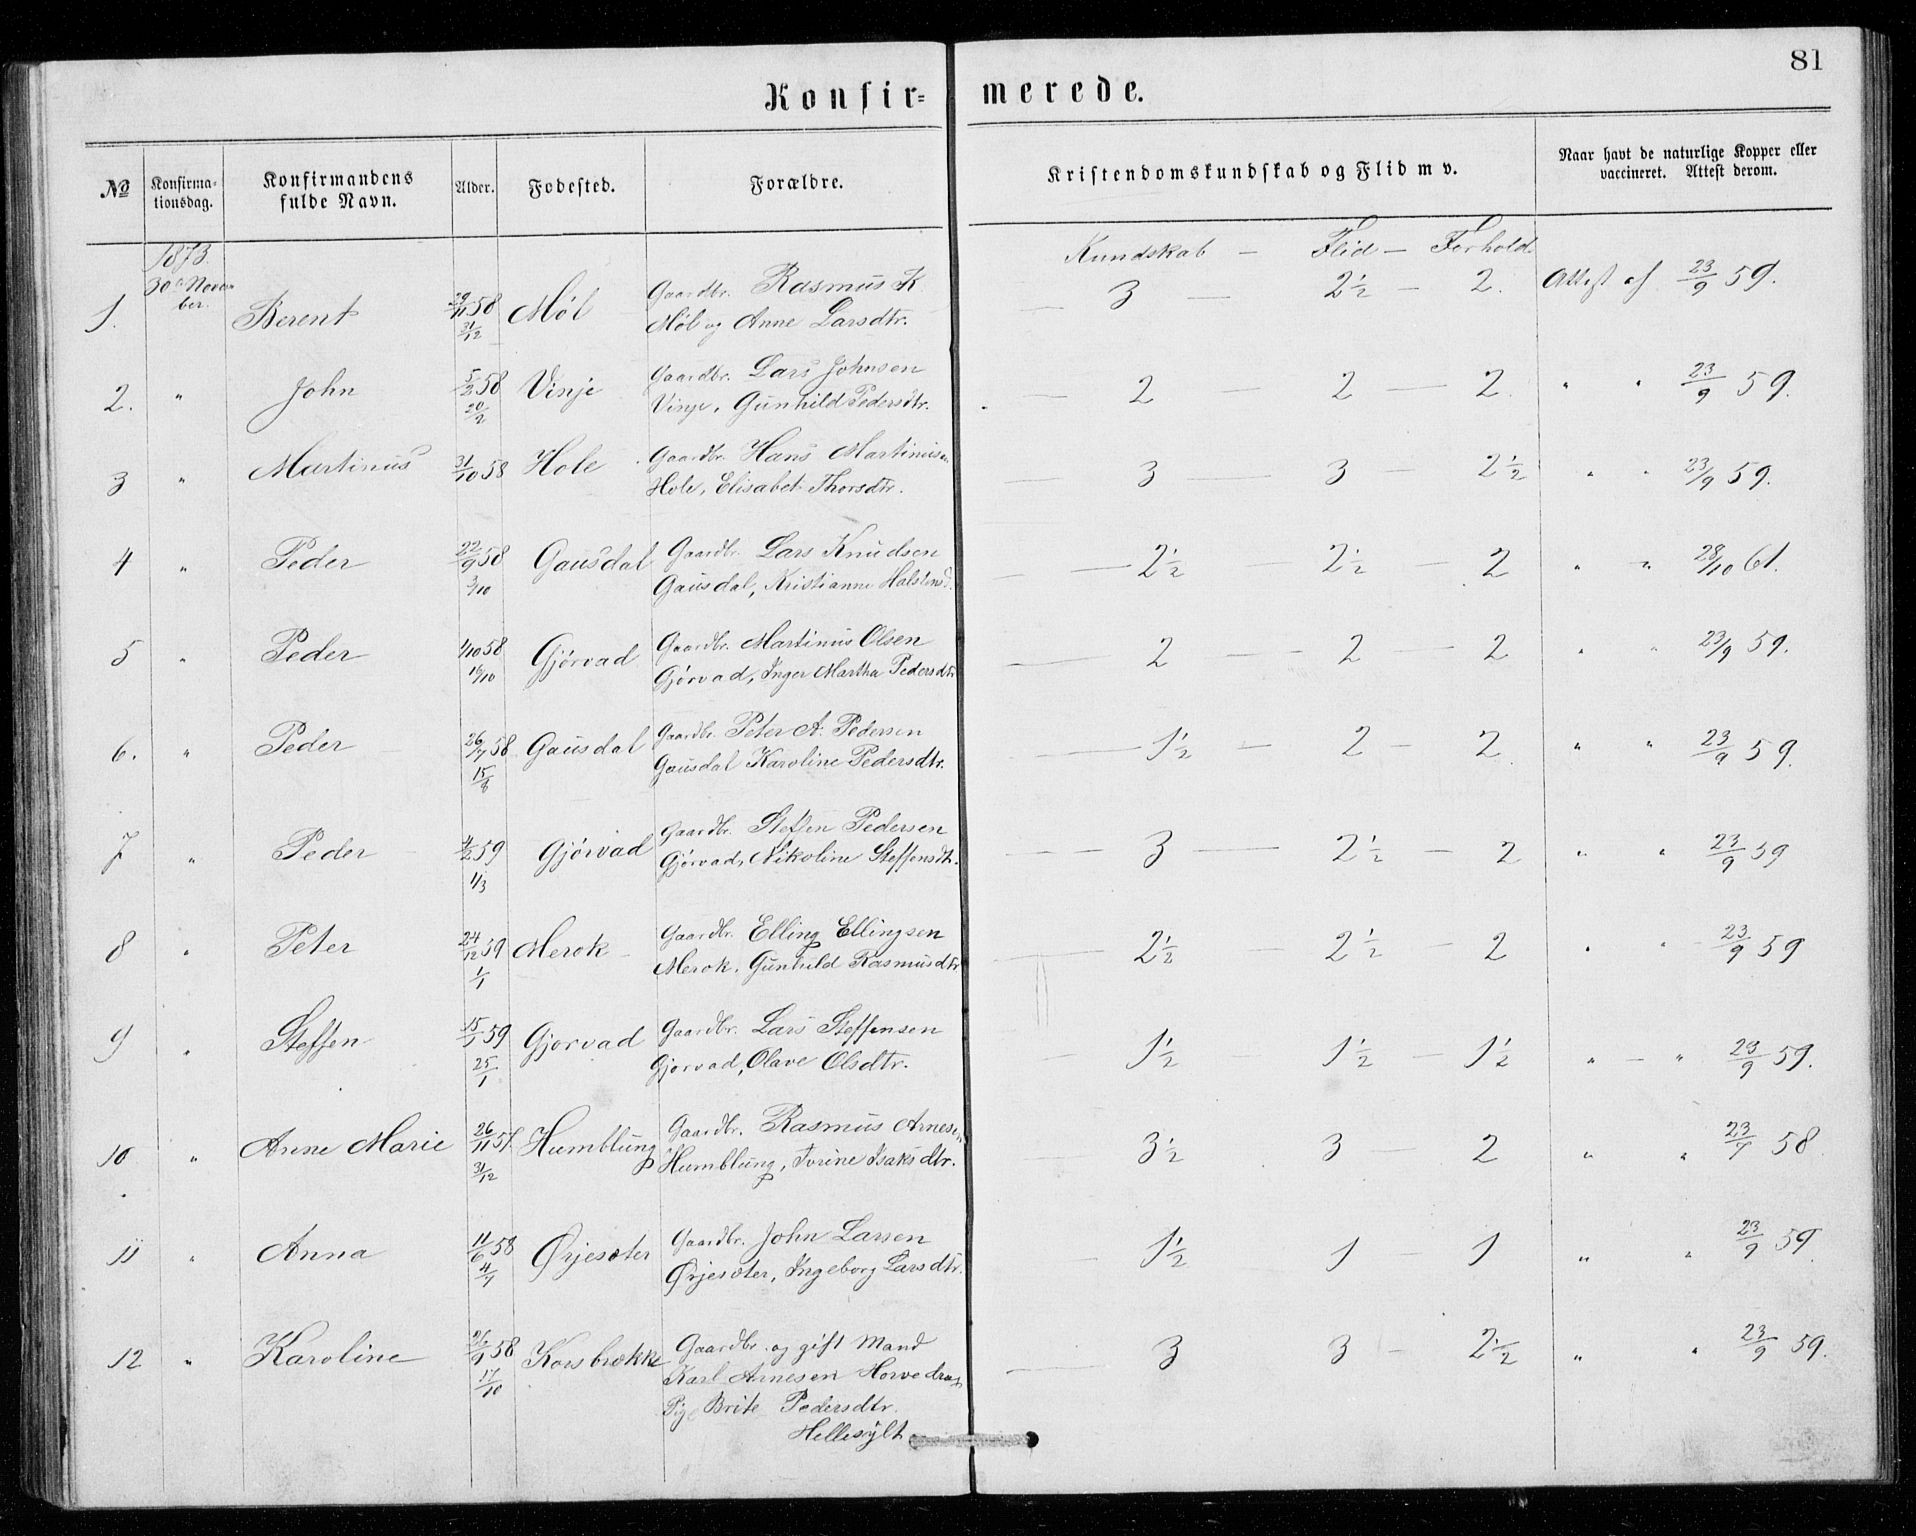 81
Konfir- merede.
No Konfirma-tionsdag. Konfirmandens fulde Navn. Alder. Fødested. Forældre. Kristendomskundskab og Flid m v. Naar havt de naturlige Kopper eller vaccineret. Attest derom.
1873. Kundskab — Flid — Forhold
1. 30te Novem-ber. Berent 29/11 58 31/12 Møl Gaardbr. Rasmus K
Møl og Anne Larsdtr. — 3 — 2½ — 2. Attest af 23/9 59.
2. " John 5/2 58 20/2 Vinje Gaardbr. Lars Johnsen
Vinje, Gunhild Pedersdtr. — 2 — 2 — 2 " " 23/9 59.
3 " Martinus 31/10 58 Hole Gaardbr. Hans Martinusen
Hole, Elisabet Thorsdtr. — 3 — 3 — 2½ " " 23/9 59.
4 " Peder 22/9 58 3/10 Gausdal Gaardbr. Lars Knudsen
Gausdal, Kristianne Halstensd. — 2½ — 2½ — 2 " " 28/10 61.
5 " Peder 1/10 58 16/10 Gjørvad Gaardbr. Martinus Olsen
Gjørvad, Inger Martha Pedersdtr — 2 — 2 — 2 " " 23/9 59.
6. " Peder 26/7 58 15/8 Gausdal Gaardbr. Peter A. Pedersen
Gausdal Karoline Pedersdtr. — 1½ — 2 — 2 " " 23/9 59.
7 " Peder 4/2 59 1/3 Gjørvad Gaardbr. Steffen Pedersen
Gjørvad, Nikoline Steffensdt. — 3 — 2½ — 2 " " 23/9 59
8 " Peter 24/12 59 1/1 Merok Gaardbr. Elling Ellingsen
Merok, Gunhild Rasmusdtr — 2½ — 2½ — 2 " " 23/9 59
9 " Steffen 15/1 59 25/1 Gjørvad Gaardbr. Lars Steffensen
Gjørvad, Olave Olsdtr. — 1½ — 1½ — 1½ " — " 23/9 59.
10 " Anne Marie 26/11 57. 31/12 Humblung Gaardbr. Rasmus Arnesen
Humblung, Torine Isaksdtr. — 3½ — 3 — 2 " " 23/7 58
11 " Anna 11/6 58 4/7 Ørjesæter Gaardbr. John Larsen
Ørjesæter, Ingeborg Larsdtr. — 1½ — 1 — 1 " " 23/9 59.
12 " Karoline 58 17/10 Korsbrække Gaardbr. og gift Mand
Karl Arnesen Horvedrag
Pige Brite Pedersdtr.
Hellesylt — 3 — 3 — 2½ " " 23/9 59.